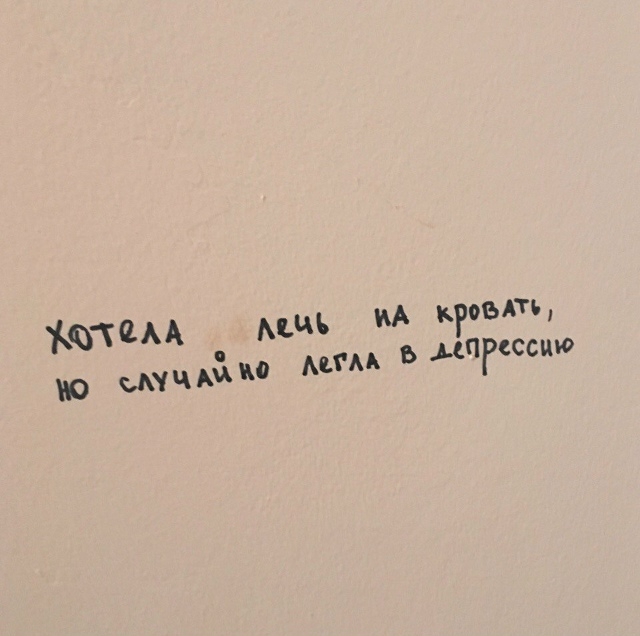 Хотела лечь на кровать,
но случайно легла в депрессию